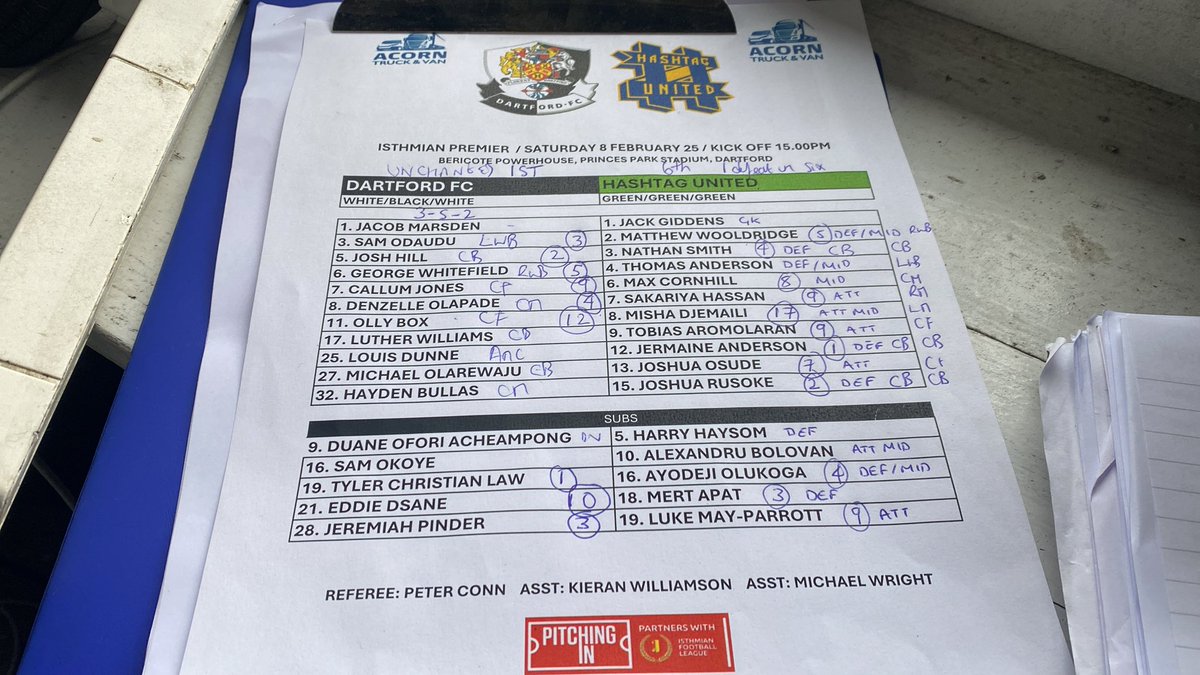 ACORN
TRUCK & VAN
DARTFORD·FC
HASHTAG
UNITED
ACORN
TRUCK & VAN
ISTHMIAN PREMIER / SATURDAY 8 FEBRUARY 25 / KICK OFF 15.00PM
BERICOTE POWERHOUSE, PRINCES PARK STADIUM, DARTFORD
UNCHANGED 1ST 6th 1 defeat in six
DARTFORD FC HASHTAG UNITED
WHITE/BLACK/WHITE GREEN/GREEN/GREEN
3-5-2
1. JACOB MARSDEN - 1. JACK GIDDENS GK
3. SAM ODAUDU LWB 3 2. MATTHEW WOOLDRIDGE 5 DEF/MID RWB
5. JOSH HILL CB 2 3. NATHAN SMITH 4 DEF CB CB
6. GEORGE WHITEFIELD RWB 5 4. THOMAS ANDERSON DEF/MID LWB
7. CALLUM JONES CF 9 6. MAX CORNHILL 8 MID CM
8. DENZELLE OLAPADE CM 4 7. SAKARIYA HASSAN 9 ATT RM
11. OLLY BOX CF 12 8. MISHA DJEMAILI 17 ATT MID LM
17. LUTHER WILLIAMS CB 9. TOBIAS AROMOLARAN 9 ATT CF
25. LOUIS DUNNE AMC 12. JERMAINE ANDERSON 1 DEF CB CB
27. MICHAEL OLAREWAJU CB 13. JOSHUA OSUDE 7 ATT CF
32. HAYDEN BULLAS CM 15. JOSHUA RUSOKE 2 DEF CB CB
SUBS
9. DUANE OFORI ACHEAMPONG 5. HARRY HAYSOM DEF
16. SAM OKOYE 10. ALEXANDRU BOLOVAN ATT MID
19. TYLER CHRISTIAN LAW 1 16. AYODEJI OLUKOGA 4 DEF/MID
21. EDDIE DSANE 10 18. MERT APAT 3 DEF
28. JEREMIAH PINDER 3 19. LUKE MAY-PARROTT 9 ATT
REFEREE: PETER CONN ASST: KIERAN WILLIAMSON ASST: MICHAEL WRIGHT
PITCHING IN
PARTNERS WITH
ISTHMIAN
FOOTBALL
LEAGUE